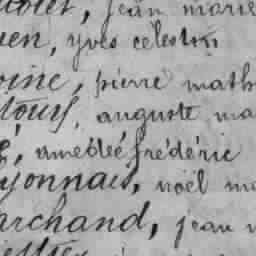 , jean marie
en, yves célestin
oine, pierre math
tours, auguste ma
, amédée frédéric
yonnais, noël m
archand, jean